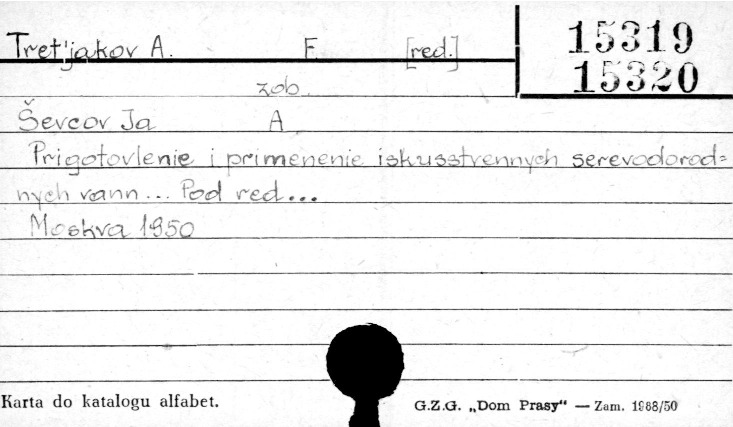 Tret'jakov A. F. [red.]
15319
15320
zob.
Ševcov Ja A
Prigotovlenie i primenenie iskusstvennych serevodorod=
nych vann... Pod red...
Moskva 1950
Karta do katalogu alfabet.
G.Z.G. „Dom Prasy“ — Zam. 1988/50